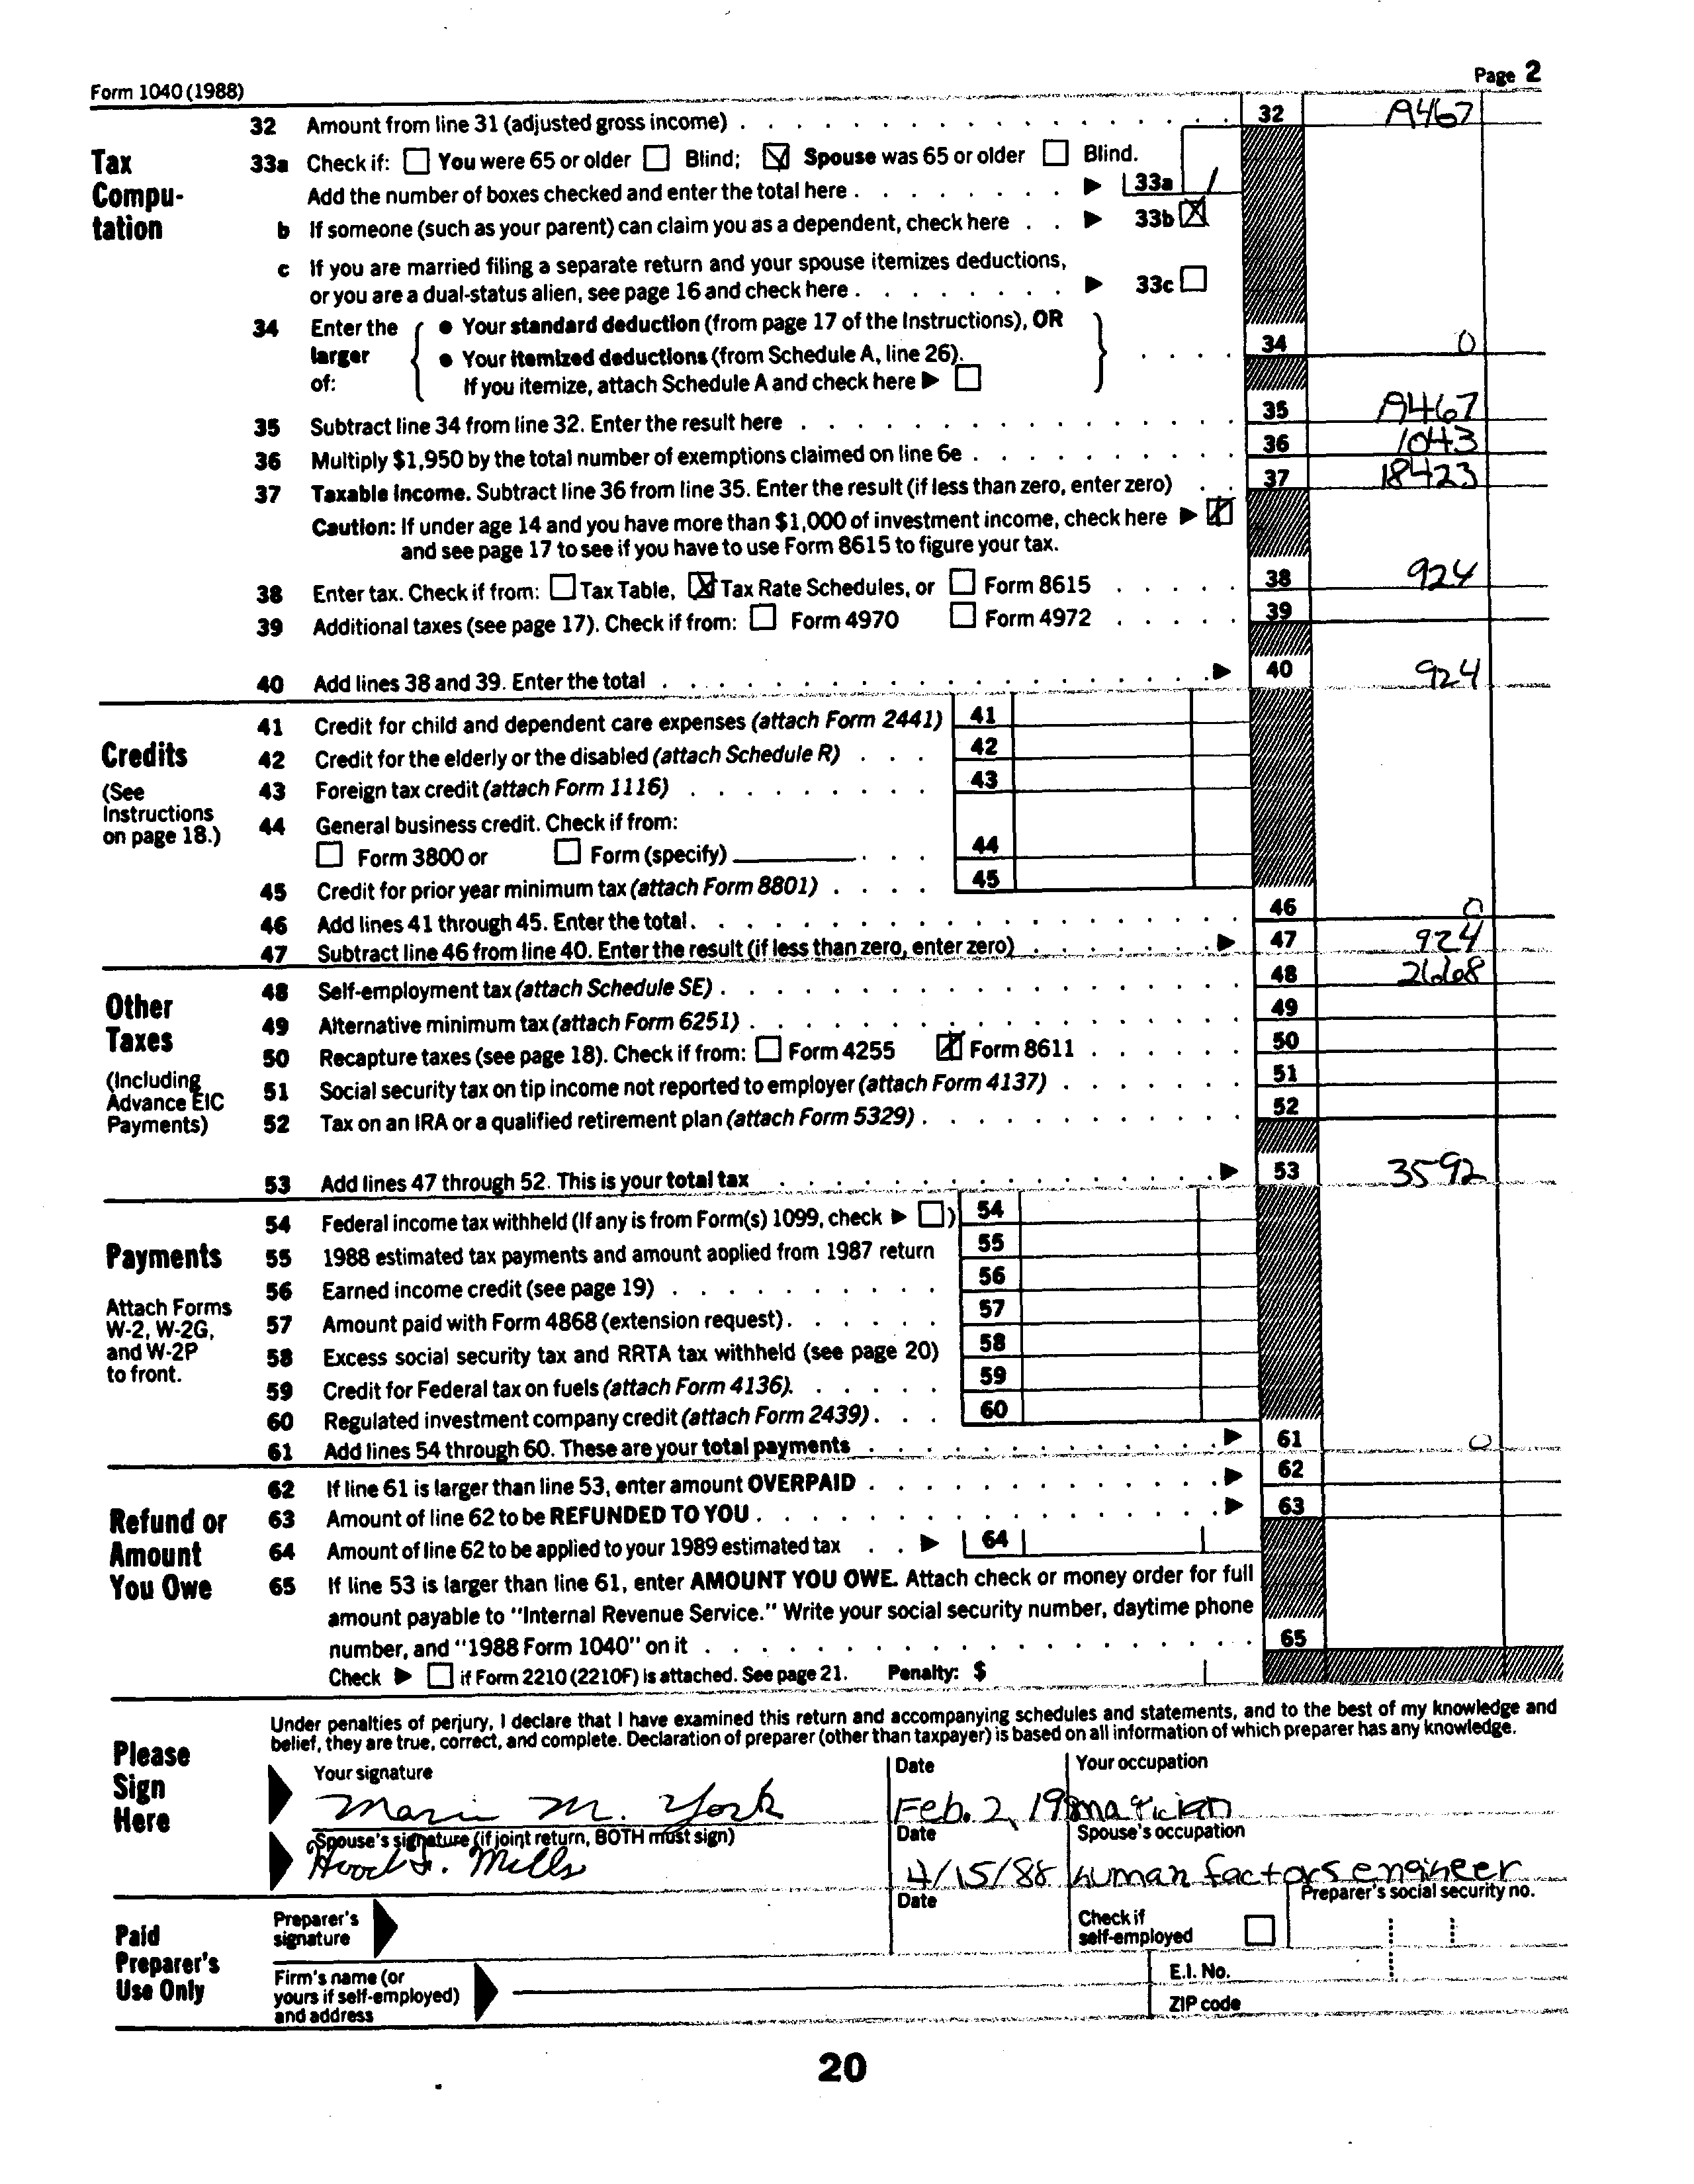 Form 1040 (1988) Page 2
32 Amount from line 31 (adjusted gross income) 32
Tax Computation
33a Check if: You were 65 or older Blind; Spouse was 65 or older Blind.
Add the number of boxes checked and enter the total here 33a 1
b If someone (such as your parent) can claim you as a dependent, check here 33b
c If you are married filing a separate return and your spouse itemizes deductions,
or you are a dual-status alien, see page 16 and check here 33c
34 Enter the larger of: • Your standard deduction (from page 17 of the Instructions), OR
• Your itemized deductions (from Schedule A, line 26). 34 0
If you itemize, attach Schedule A and check here
35 Subtract line 34 from line 32. Enter the result here 35
36 Multiply $1,950 by the total number of exemptions claimed on line 6e 36 1043
37 Taxable income. Subtract line 36 from line 35. Enter the result (if less than zero, enter zero) 37 18423
Caution: If under age 14 and you have more than $1,000 of investment income, check here
and see page 17 to see if you have to use Form 8615 to figure your tax.
38 Enter tax. Check if from: Tax Table, Tax Rate Schedules, or Form 8615 38 924
39 Additional taxes (see page 17). Check if from: Form 4970 Form 4972 39
40 Add lines 38 and 39. Enter the total 40 924
Credits
(See Instructions on page 18.)
41 Credit for child and dependent care expenses (attach Form 2441) 41
42 Credit for the elderly or the disabled (attach Schedule R) 42
43 Foreign tax credit (attach Form 1116) 43
44 General business credit. Check if from:
Form 3800 or Form (specify) 44
45 Credit for prior year minimum tax (attach Form 8801) 45
46 Add lines 41 through 45. Enter the total 46 0
47 Subtract line 46 from line 40. Enter the result (if less than zero, enter zero) 47 924
Other Taxes
(Including Advance EIC Payments)
48 Self-employment tax (attach Schedule SE) 48 2668
49 Alternative minimum tax (attach Form 6251) 49
50 Recapture taxes (see page 18). Check if from: Form 4255 Form 8611 50
51 Social security tax on tip income not reported to employer (attach Form 4137) 51
52 Tax on an IRA or a qualified retirement plan (attach Form 5329) 52
53 Add lines 47 through 52. This is your total tax 53 3592
Payments
Attach Forms W-2, W-2G, and W-2P to front.
54 Federal income tax withheld (If any is from Form(s) 1099, check ) 54
55 1988 estimated tax payments and amount applied from 1987 return 55
56 Earned income credit (see page 19) 56
57 Amount paid with Form 4868 (extension request) 57
58 Excess social security tax and RRTA tax withheld (see page 20) 58
59 Credit for Federal tax on fuels (attach Form 4136) 59
60 Regulated investment company credit (attach Form 2439) 60
61 Add lines 54 through 60. These are your total payments 61 0
Refund or Amount You Owe
62 If line 61 is larger than line 53, enter amount OVERPAID 62
63 Amount of line 62 to be REFUNDED TO YOU 63
64 Amount of line 62 to be applied to your 1989 estimated tax 64
65 If line 53 is larger than line 61, enter AMOUNT YOU OWE. Attach check or money order for full
amount payable to "Internal Revenue Service." Write your social security number, daytime phone
number, and "1988 Form 1040" on it 65
Check if Form 2210 (2210F) is attached. See page 21. Penalty: $
Please Sign Here
Under penalties of perjury, I declare that I have examined this return and accompanying schedules and statements, and to the best of my knowledge and
belief, they are true, correct, and complete. Declaration of preparer (other than taxpayer) is based on all information of which preparer has any knowledge.
Your signature Date Your occupation
Mari M. York Feb. 2, 19
Spouse's signature (if joint return, BOTH must sign) Date Spouse's occupation
Mills 4/15/88 human factors engineer
Paid Preparer's Use Only
Preparer's signature Date Check if self-employed Preparer's social security no.
Firm's name (or yours if self-employed) and address E.I. No.
ZIP code
20